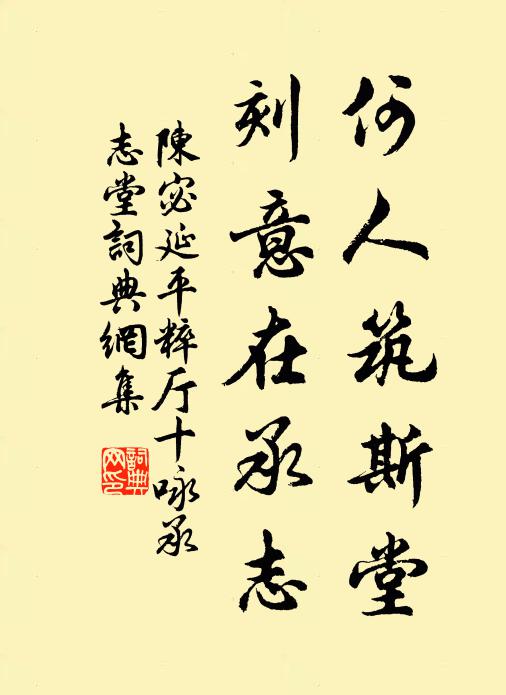 何人筑斯堂
刻意在承志
陳宓延平粹厅十咏承
志堂詞典網集
詞典
网印